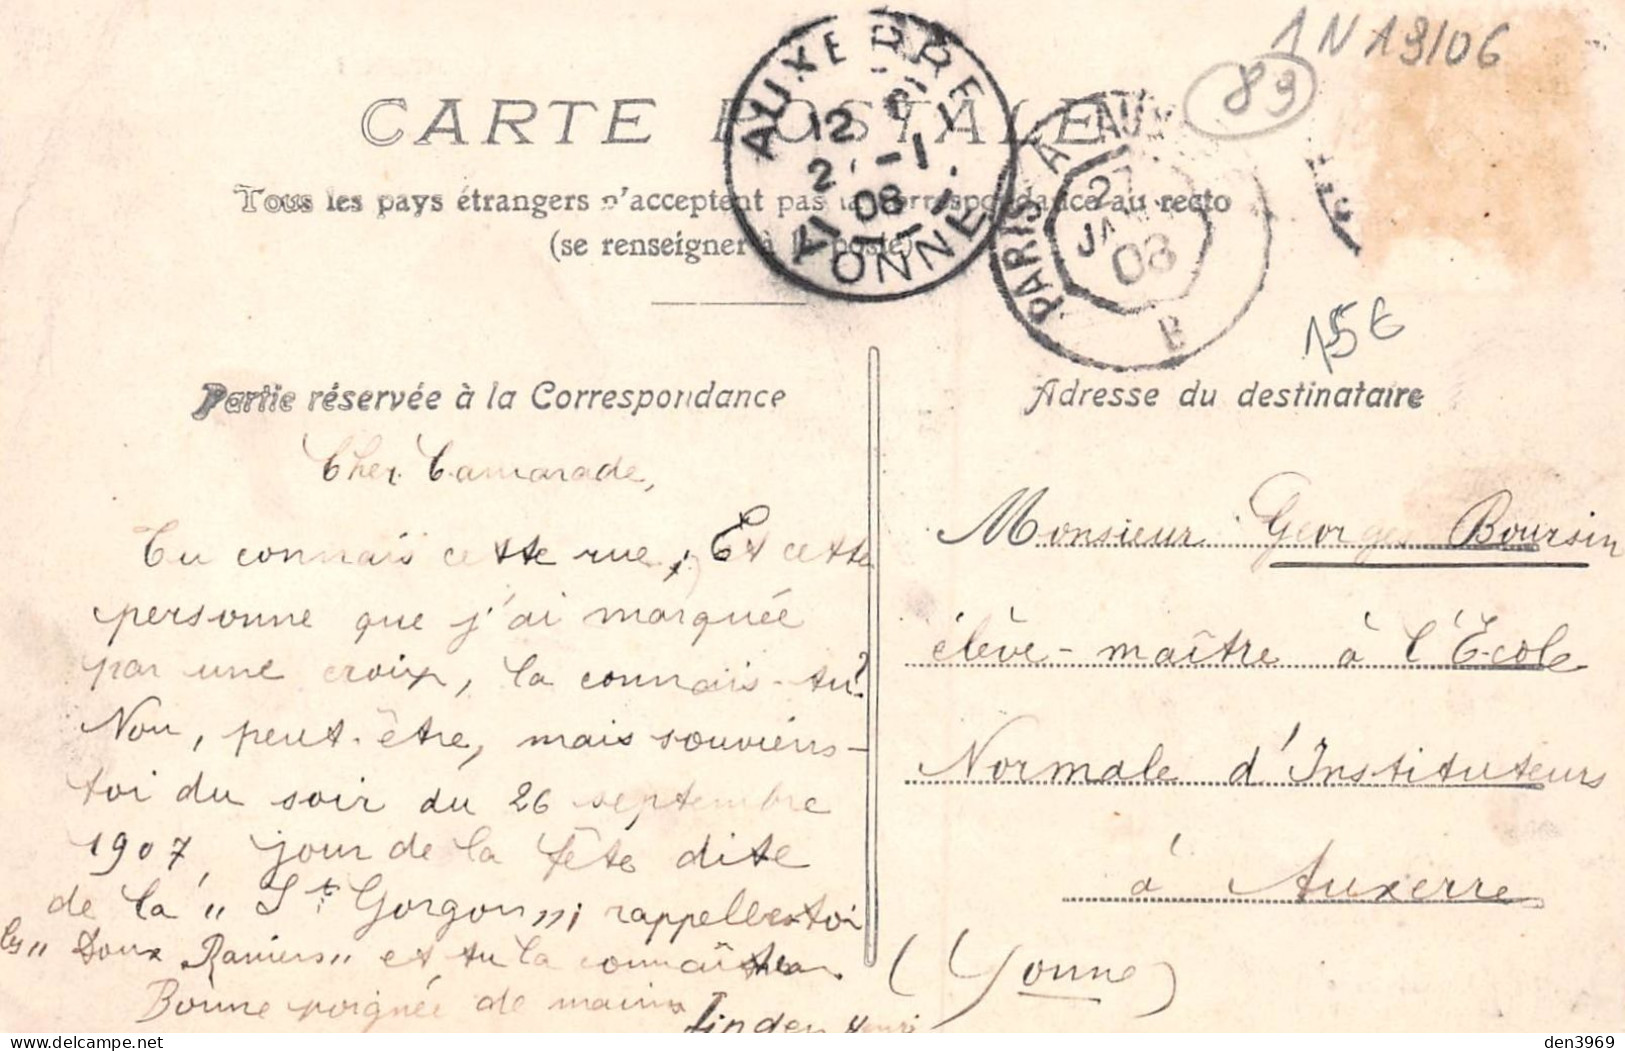 1N19/06
89
CARTE POSTALE
AUXERRE
12
2 -1
08
YONNE
PARIS A AUX
27
JAN
08
B
Tous les pays étrangers n'acceptent pas la correspondance au recto
(se renseigner à la poste)
15€
Partie réservée à la Correspondance
Cher Camarade,
Tu connais cette rue, Et cette
personne que j'ai marquée
par une croix, la connais-tu?
Non, peut-être, mais souviens-
toi du soir du 26 septembre
1907, jour de la fête dite
de la "St Gorgon"; rappelles-toi
les "Doux Raniers" et tu la connaîtras.
Bonne poignée de mains
Linden Henri
Adresse du destinataire
Monsieur Georges Boursin
élève-maître à l'École
Normale d'Instituteurs
à Auxerre
(Yonne)
den3969